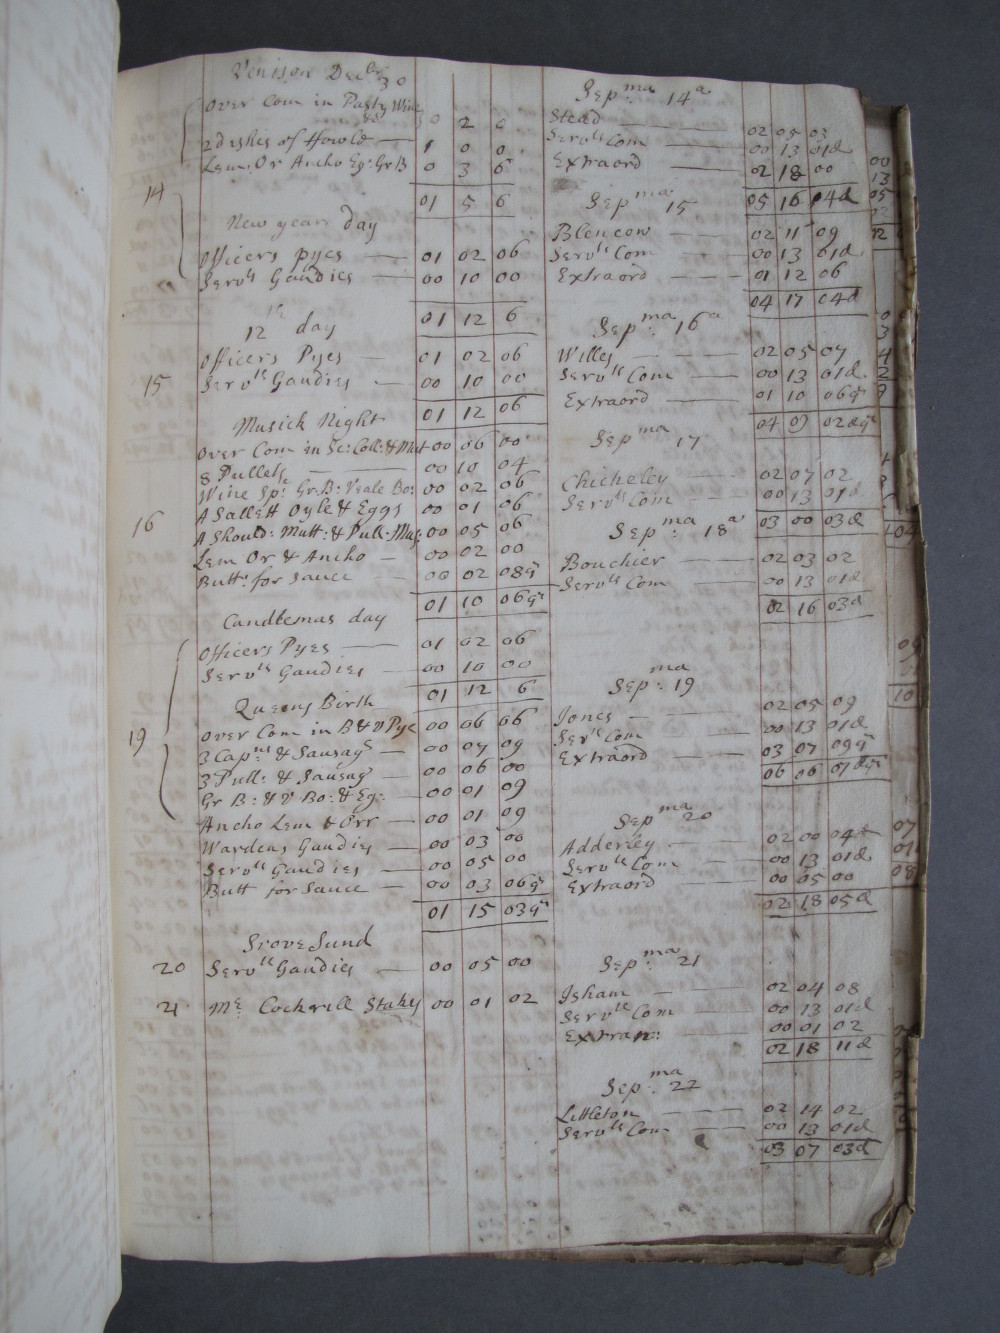 Venison Dec.br 30
Over Com in Pasty Wine
&c 0 2 0
2 dishes of Howld 1 0 0
Lem: Or Ancho Eg: Gr B 0 3 6
14 01 5 6
New years day
Officers pyes 01 02 06
Servts Gaudies 00 10 00
01 12 6
12th day
Officers Pyes 01 02 06
15 Servts Gaudies 00 10 00
01 12 06
Musick Night
Over Com in Sc: Coll: & Mut 00 06 00
8 Pulletts 00 10 04
Wine Sp: Gr. B: Veale Bo: 00 02 06
A Sallett Oyle & Eggs 00 01 06
16 A Should: Mutt: & Pull: Mus: 00 05 06
Lem Or & Ancho 00 02 00
Butt: for Sauce 00 02 08q
01 10 06q
Candlemas day
Officers Pyes 01 02 06
Servts Gaudies 00 10 00
01 12 6
Queens Birth
Over Com in B & V Pye 00 06 06
19 3 Capns & Sausags 00 07 09
3 Pull: & Sausag 00 06 00
Gr B: & V Bo: & Eg: 00 01 09
Ancho Lem & Orr 00 01 09
Wardens Gaudies 00 03 00
Servts Gaudies 00 05 00
Butt for Sauce 00 03 06q
01 15 03q
Srove Sund
20 Servts Gaudies 00 05 00
21 Mr Cockrill Stakes 00 01 02
Sep:ma 14a
Stead 02 05 03
Servts Com 00 13 01d
Extraord 02 18 00
05 16 04d
Sep:ma 15
Blencow 02 11 09
Servts Com 00 13 01d
Extraord 01 12 06
04 17 04d
Sep:ma 16a
Willes 02 05 07
Servts Com 00 13 01d
Extraord 01 10 06q
04 09 02dq
Sep:ma 17
Chicheley 02 07 02
Servts Com 00 13 01d
03 00 03d
Sep:ma 18a
Bouchier 02 03 02
Servts Com 00 13 01d
02 16 03d
Sep:ma 19
Jones 02 05 09
Servts Com 00 13 01d
Extraord 03 07 09q
06 06 07dq
Sep:ma 20
Adderley 02 00 04
Servts Com 00 13 01d
Extraord 00 05 00
02 18 05d
Sep:ma 21
Isham 02 04 08
Servts Com 00 13 01d
Extran: 00 01 02
02 18 11d
Sep:ma 22
Littleton 02 14 02
Servts Com 00 13 01d
03 07 03d